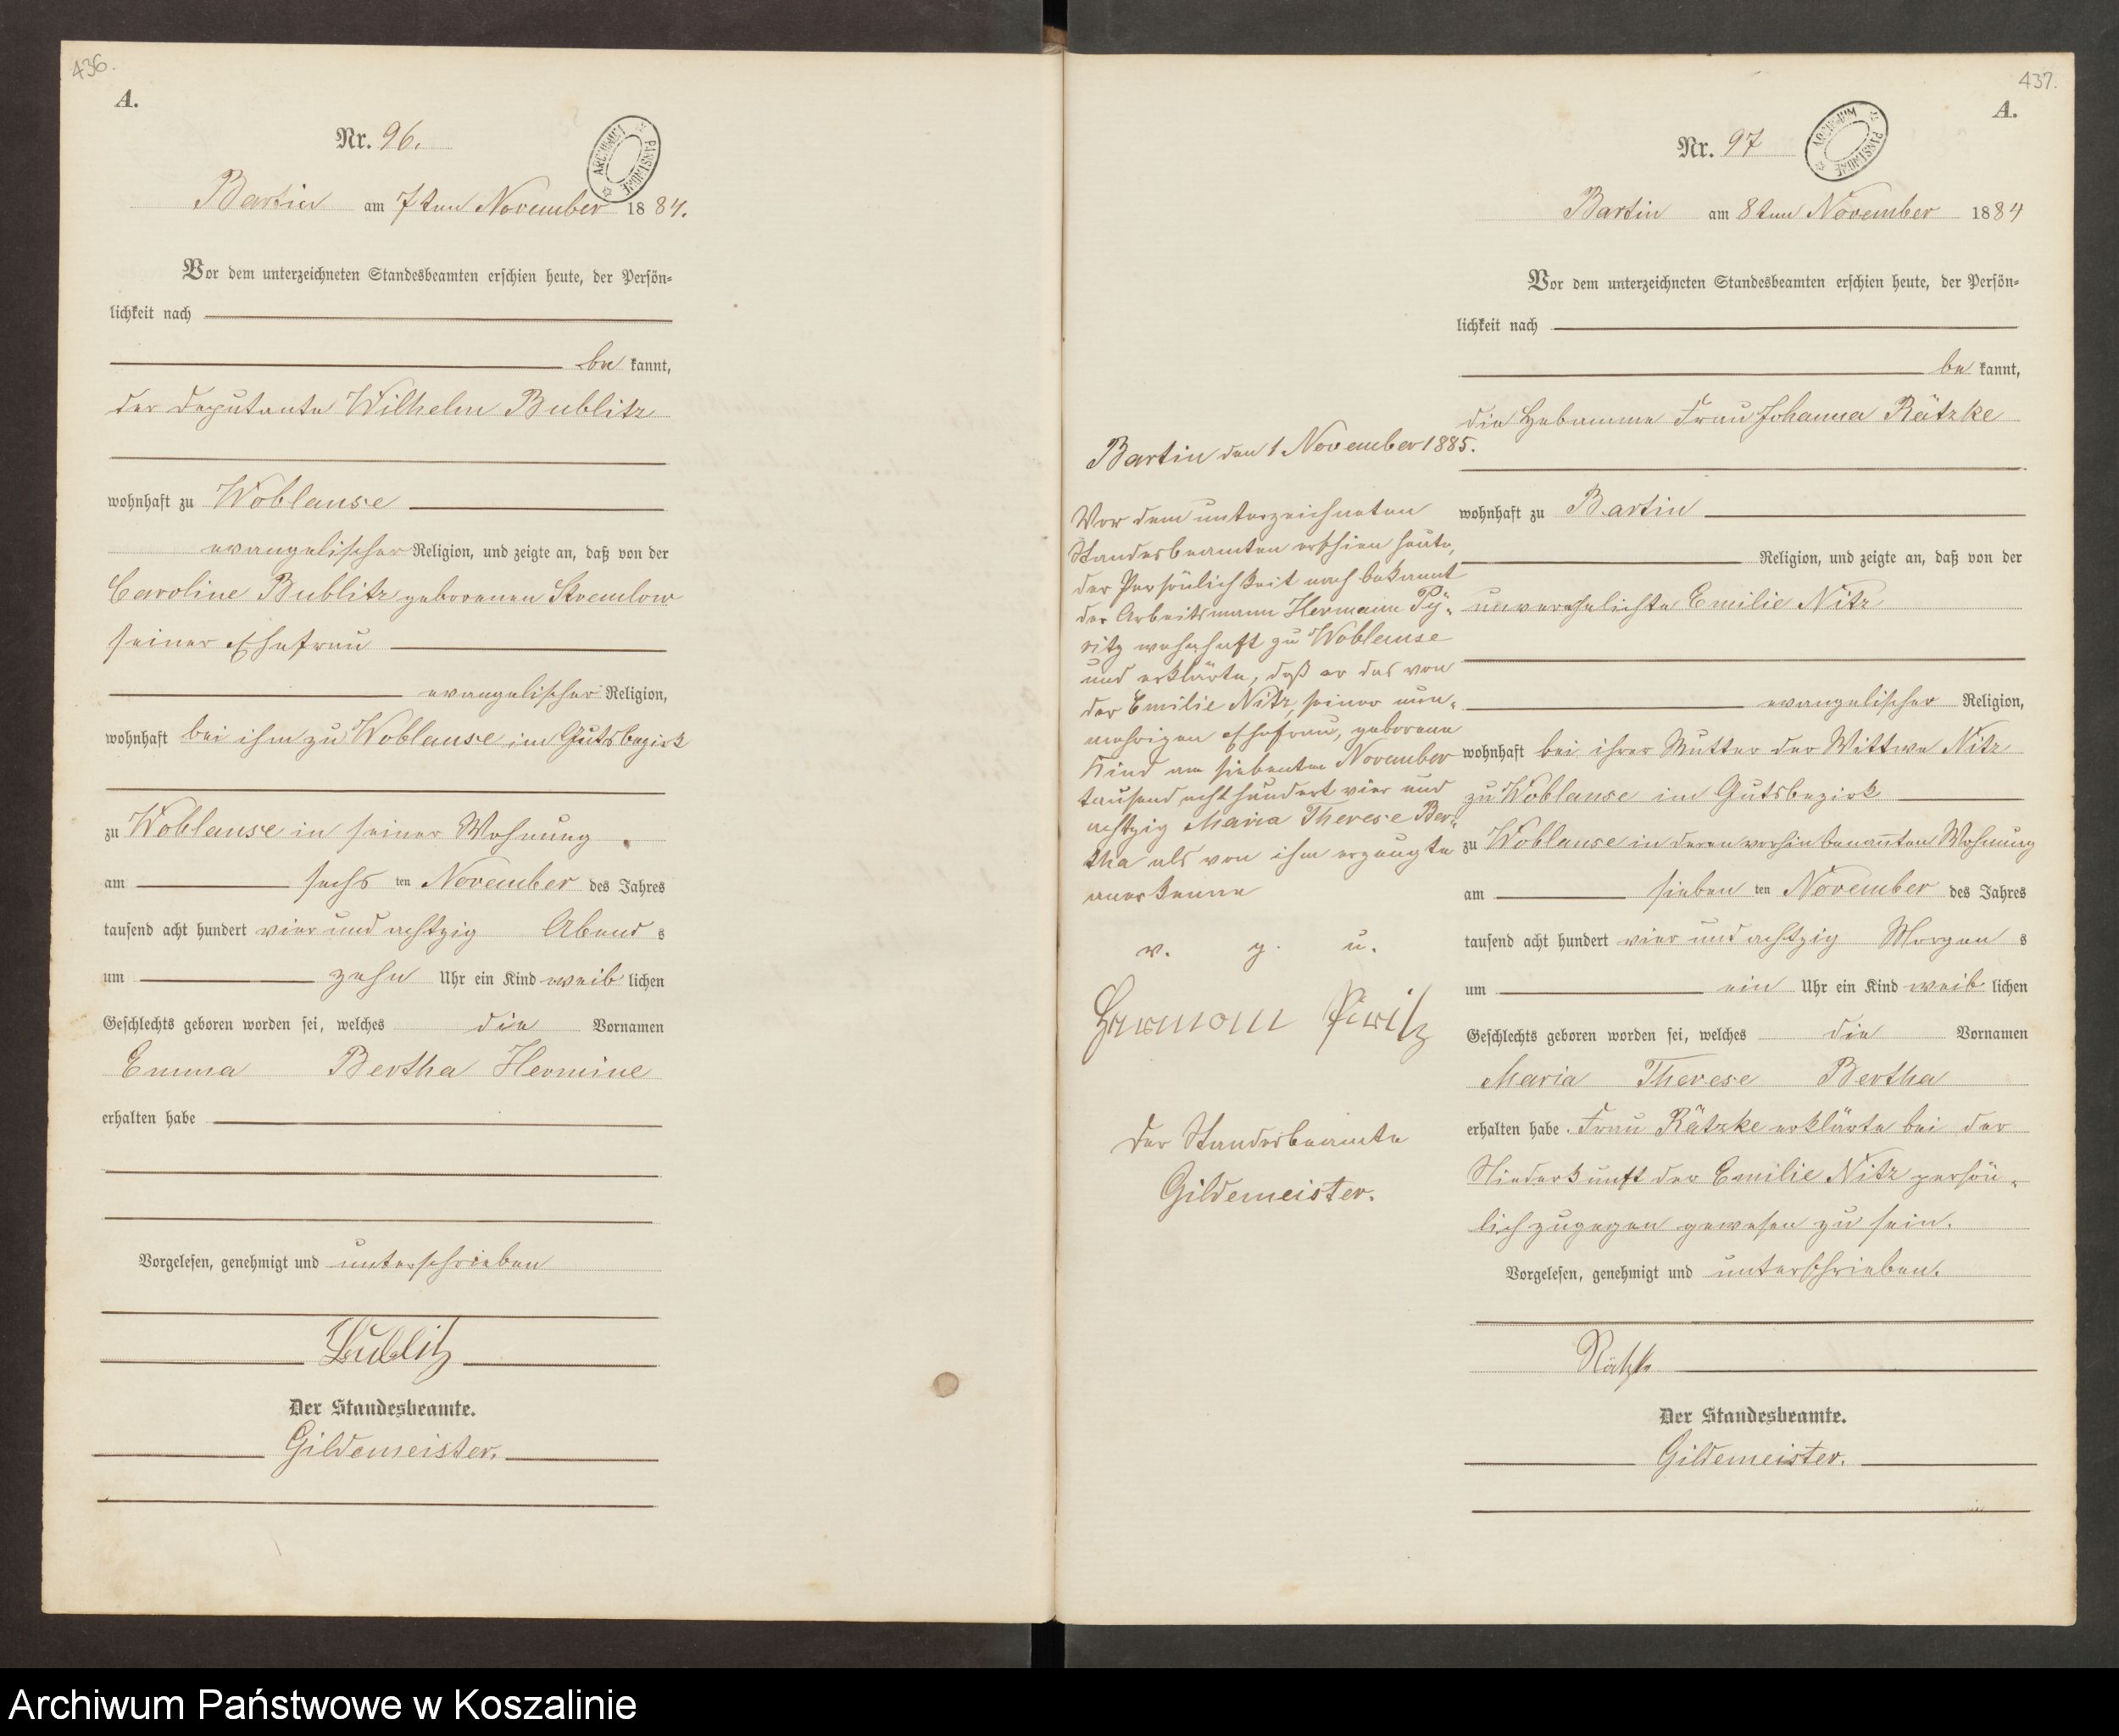 436.
A.
Nr. 96.
ARCHIWUM PAŃSTWOWE
Bartin am 7ten November 1884.
Vor dem unterzeichneten Standesbeamten erschien heute, der Persön-
lichkeit nach
bekannt,
der Deputante Wilhelm Bublitz
wohnhaft zu Woblanse
evangelischer Religion, und zeigte an, daß von der
Caroline Bublitz geborenen Stremlow
seiner Ehefrau
evangelischer Religion,
wohnhaft bei ihm zu Woblanse im Gutsbezirk
zu Woblanse in seiner Wohnung
am sechs ten November des Jahres
tausend acht hundert vier und achtzig Abend s
um zehn Uhr ein Kind weib lichen
Geschlechts geboren worden sei, welches die Vornamen
Emma Bertha Hermine
erhalten habe
Vorgelesen, genehmigt und unterschrieben
Bublitz
Der Standesbeamte.
Gildemeister.
437.
A.
Nr. 97
ARCHIWUM PAŃSTWOWE
Bartin am 8ten November 1884
Vor dem unterzeichneten Standesbeamten erschien heute, der Persön-
lichkeit nach
bekannt,
die Hebamme Frau Johanna Rätzke
wohnhaft zu Bartin
Religion, und zeigte an, daß von der
unverehelichte Emilie Nitz
evangelischer Religion,
wohnhaft bei ihrer Mutter der Wittwe Nitz
zu Woblanse im Gutsbezirk
zu Woblanse in deren vorhin benan̄ten Wohnung
am sieben ten November des Jahres
tausend acht hundert vier und achtzig Morgen s
um ein Uhr ein Kind weib lichen
Geschlechts geboren worden sei, welches die Vornamen
Maria Therese Bertha
erhalten habe. Frau Rätzke erklärte bei der
Niederkunft der Emilie Nitz persön-
lich zugegen gewesen zu sein.
Vorgelesen, genehmigt und unterschrieben.
Rätzke
Der Standesbeamte.
Gildemeister.
Bartin den 1 November 1885.
Vor dem unterzeichneten
Standesbeamten erschien heute,
der Persönlichkeit nach bekannt
der Arbeitsmann Hermann Py-
ritz wohnhaft zu Woblanse
und erklärte, daß er das von
der Emilie Nitz, seiner nun-
mehrigen Ehefrau, geborene
Kind am siebenten November
tausend acht hundert vier und
achtzig Maria Therese Ber-
tha als von ihm erzeugte
anerkenne
v. g. u.
Hermann Piritz
Der Standesbeamte
Gildemeister.
Archiwum Państwowe w Koszalinie